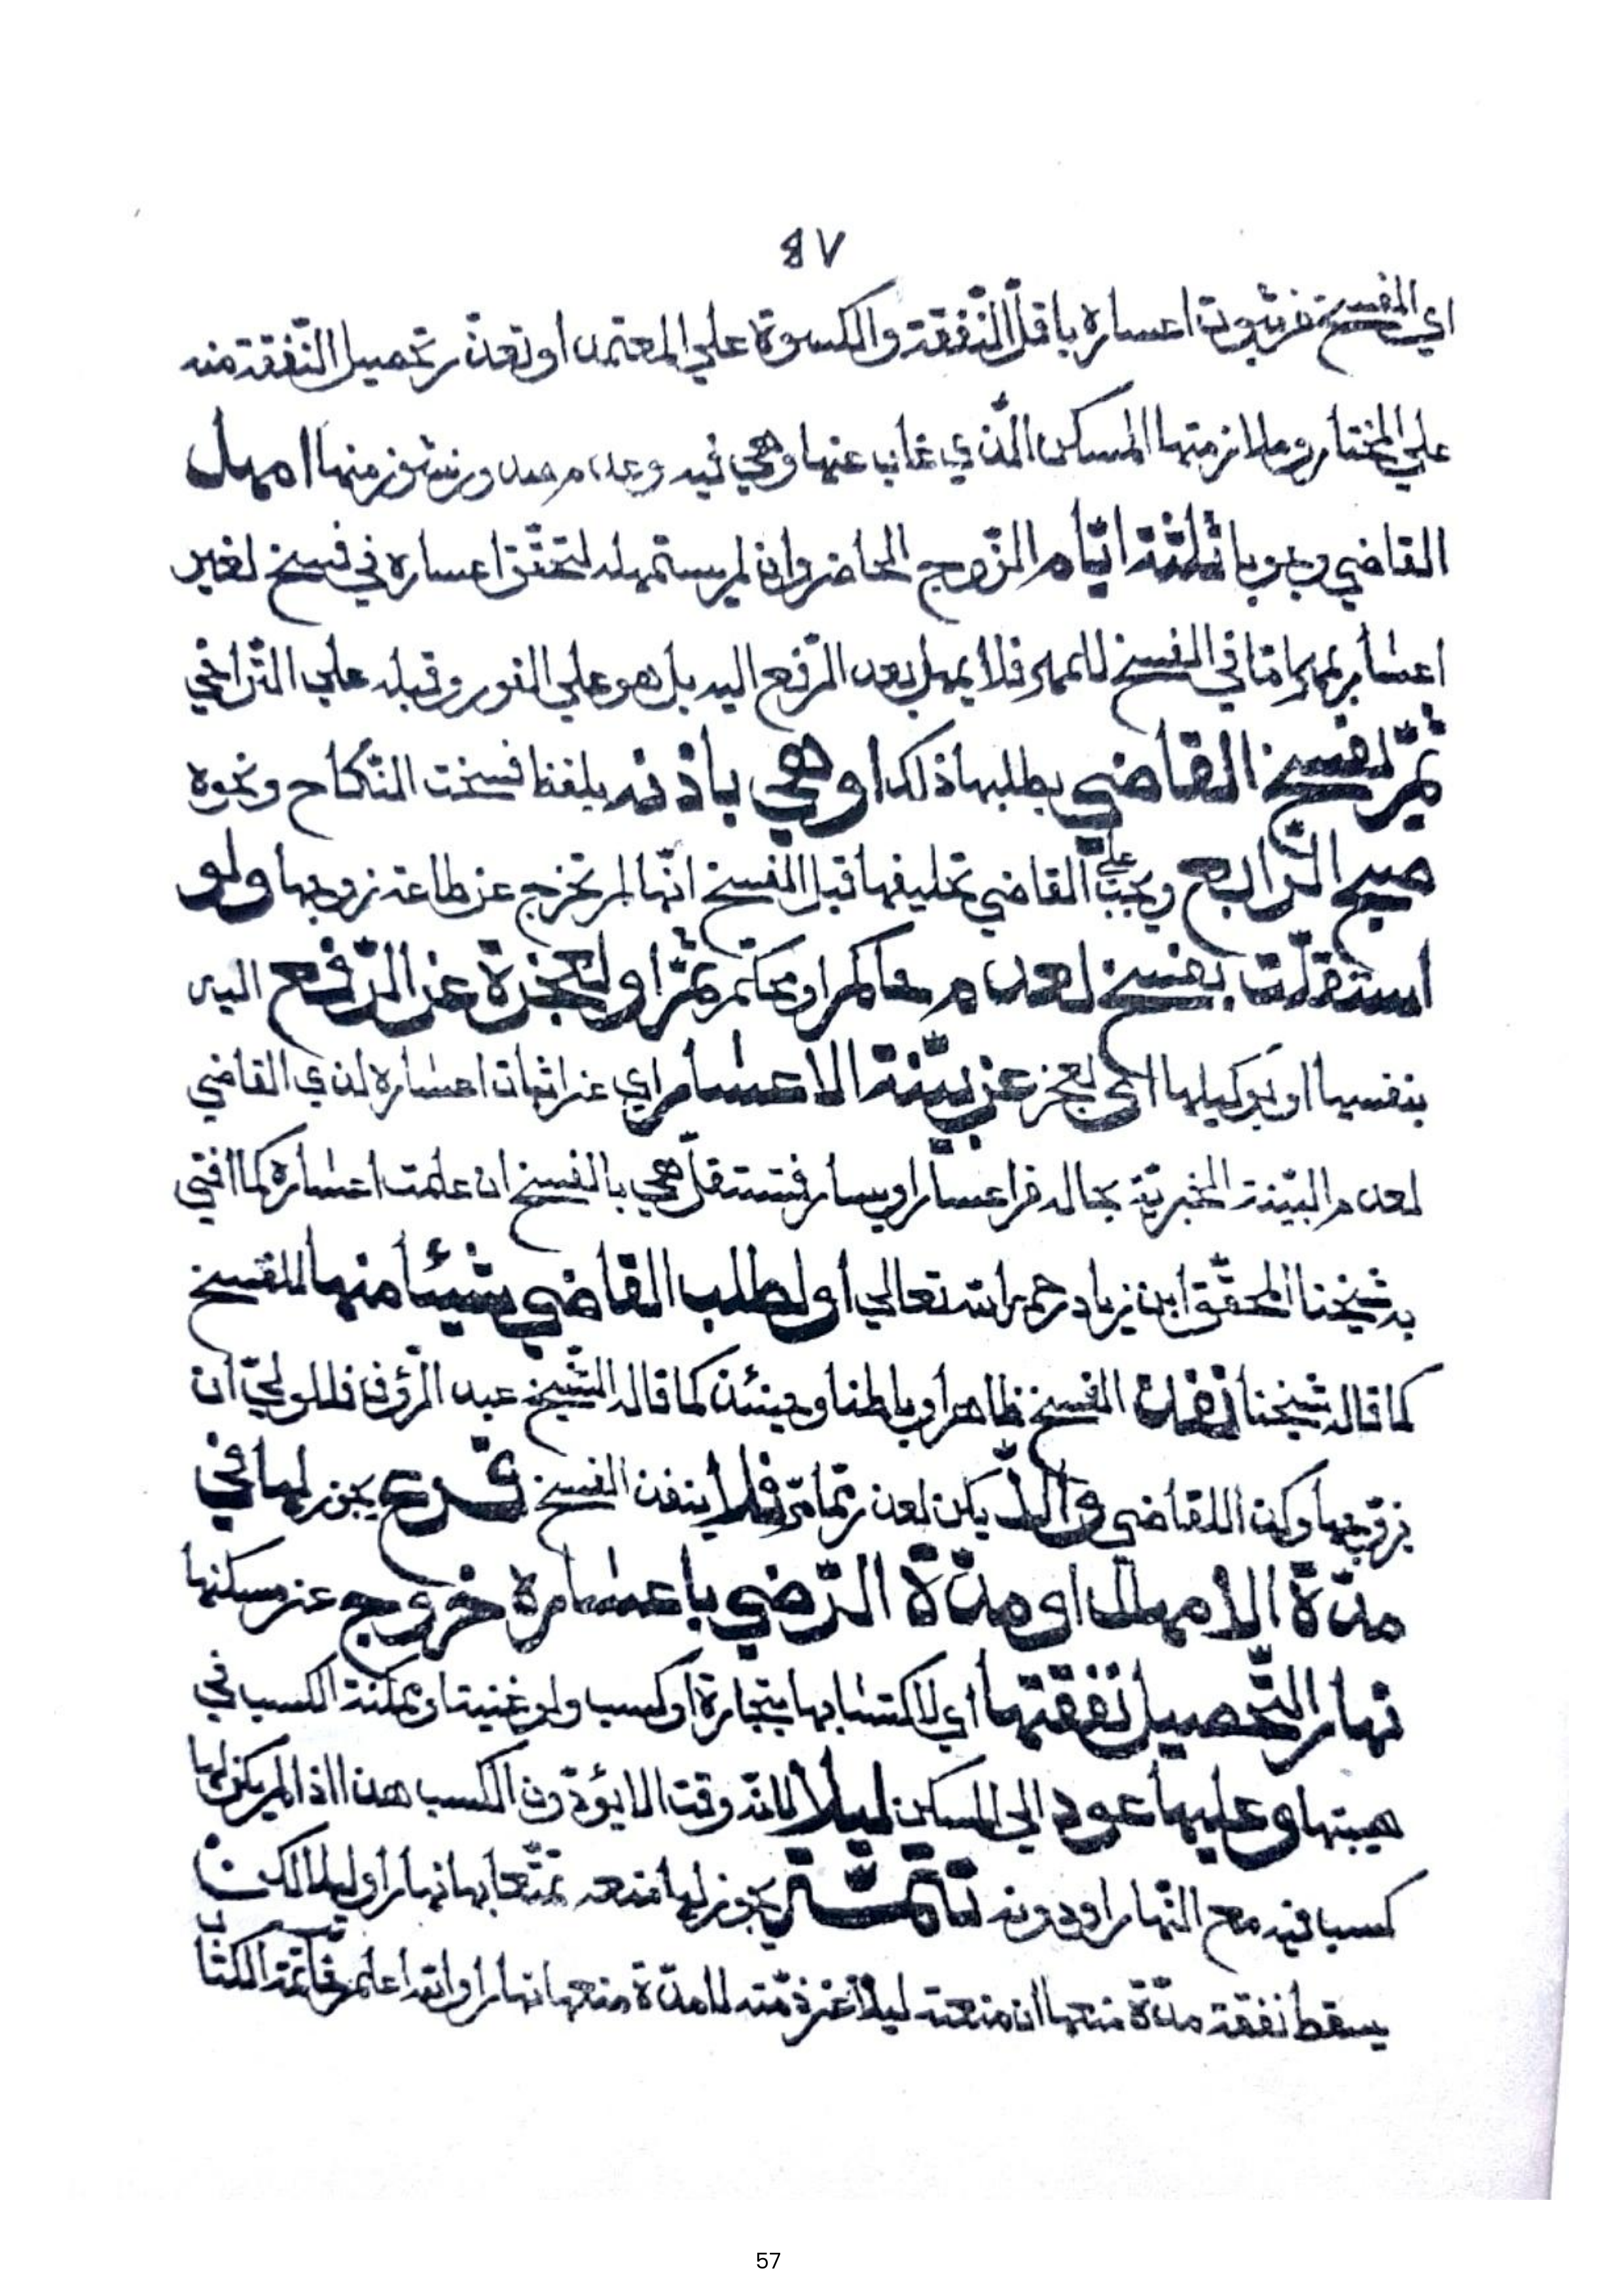 ٤٧
اي الفسخ من ثبوت اعساره باقل النفقة والكسوة علي المعتمد او تعذر تحصيل النفقة منه
علي المختار وملازمتها المسكن الذي غاب عنها وهي فيه وعدم صدور نشوز منها امهل
القاضي وجوبا ثلثة ايام الزوج الحاضر وان لم يستمهله لتحقق اعساره في فسخ لغير
اعسار بمهر اما في الفسخ للمهر فلا يمهل بعد الرفع اليه بل هو علي الفور وقبله علي التراخي
ثم لفسخ القاضي بطلبها ذلك او هي باذنه بلفظ فسخت النكاح ونحوه
صبح الرابع ويجب علي القاضي تحليفها قبل الفسخ انها لم تخرج عن طاعة زوجها ولو
استقلت بفسخ لعدم حاكم او محكم ثم او لعجزة عن الرفع اليه
بنفسها او بوكيلها اي لعجز عن بينة الاعسار اي عن اثبات اعساره لدي القاضي
لعدم البينة الخبرية بحاله من اعسار او يسار فتستقل هي بالفسخ ان علمت اعساره كما افتي
به شيخنا المحقق ابن زياد رحمه الله تعالي او لطلب القاضي شيئا منها للفسخ
كما قاله شيخنا نفذ الفسخ ظاهرا وباطنا وحينئذ كما قاله الشيخ عبد الرؤف فللولي ان
يزوجها وكذا للقاضي والا يكن لعذر مما مر فلا ينفذ الفسخ فرع يجوز لها في
مدة الامهال او مدة الرضي باعساره خروج عن مسكنها
نهارا لتحصيل نفقتها اي لاكتسابها بتجارة او كسب ولو غنية او ممكنة الكسب في
بيتها وعليها عود الي المسكن ليلا لانه وقت الايؤ دون الكسب هذا اذا لم يكن لها
كسب فيه مع النهار او دونه تتمة يجوز لها منعه تمتعا بها نهارا وليلا لكن
يسقط نفقة مدة منعها ان منعته ليلا عن ذمته لا مدة منعها نهارا والله اعلم خاتمة الكتا